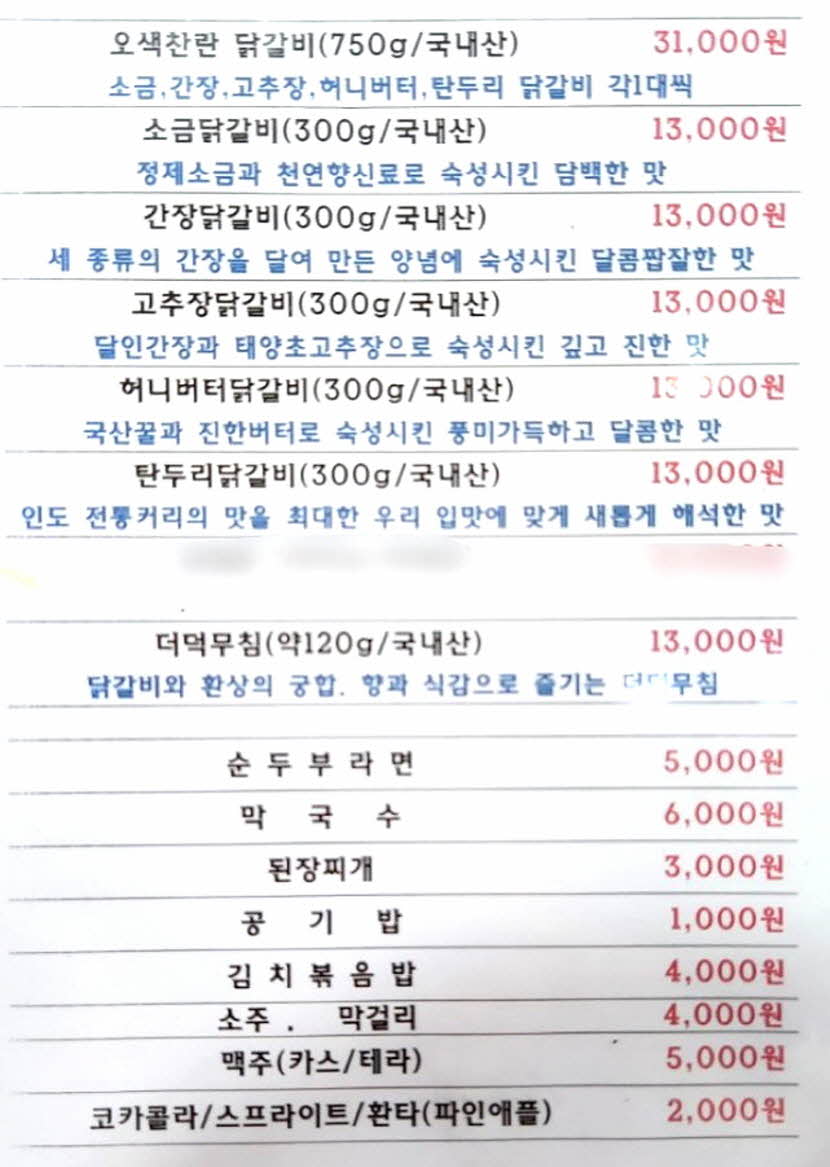 오색찬란 닭갈비(750g/국내산) 31,000원
소금,간장,고추장,허니버터,탄두리 닭갈비 각1대씩
소금닭갈비(300g/국내산) 13,000원
정제소금과 천연향신료로 숙성시킨 담백한 맛
간장닭갈비(300g/국내산) 13,000원
세 종류의 간장을 달여 만든 양념에 숙성시킨 달콤짭잘한 맛
고추장닭갈비(300g/국내산) 13,000원
달인간장과 태양초고추장으로 숙성시킨 깊고 진한 맛
허니버터닭갈비(300g/국내산)
국산꿀과 진한버터로 숙성시킨 풍미가득하고 달콤한 맛
탄두리닭갈비(300g/국내산) 13,000원
인도 전통커리의 맛을 최대한 우리 입맛에 맞게 새롭게 해석한 맛
더덕무침(약120g/국내산) 13,000원
닭갈비와 환상의 궁합. 향과 식감으로 즐기는
순두부라면 5,000원
막 국 수 6,000원
된장찌개 3,000원
공 기 밥 1,000원
김치볶음밥 4,000원
소주 . 막걸리 4,000원
맥주(카스/테라) 5,000원
코카콜라/스프라이트/환타(파인애플) 2,000원